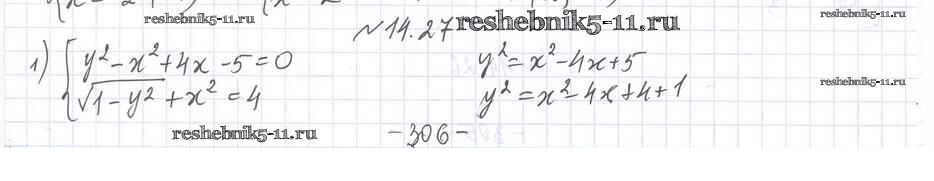 reshebnik5-11.ru
№14.27 reshebnik5-11.ru
reshebnik5-11.ru
1) { y² - x² + 4x - 5 = 0
√(1 - y²) + x² = 4
y² = x² - 4x + 5
y² = x² - 4x + 4 + 1
reshebnik5-11.ru
reshebnik5-11.ru
- 306 -